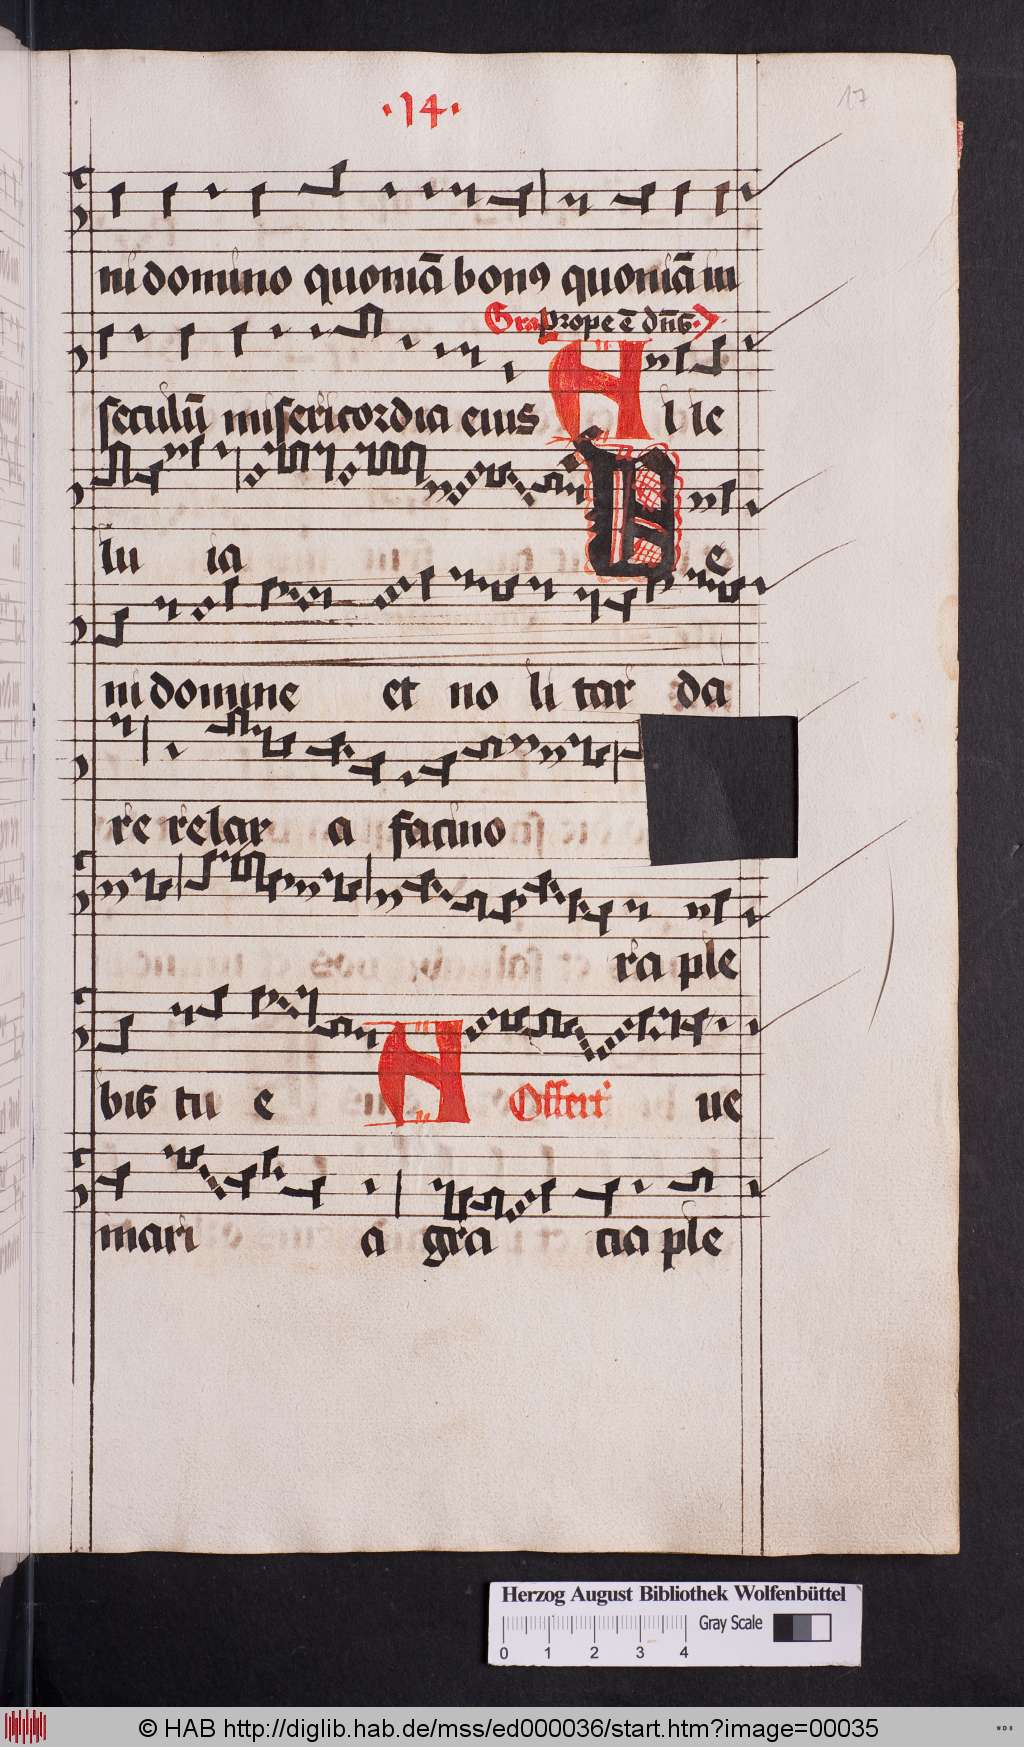 ·14·
17
ni domino quoniā bonꝰ quoniā in
Gra Prope ē dn̄s
seculū misericordia eius A l le
lu ia V e
ni domine et no li tar da
re relax a facino
ra ple
bis tu e A Offert' ue
mari a gra cia ple
Herzog August Bibliothek Wolfenbüttel
Gray Scale
0 1 2 3 4
© HAB http://diglib.hab.de/mss/ed000036/start.htm?image=00035